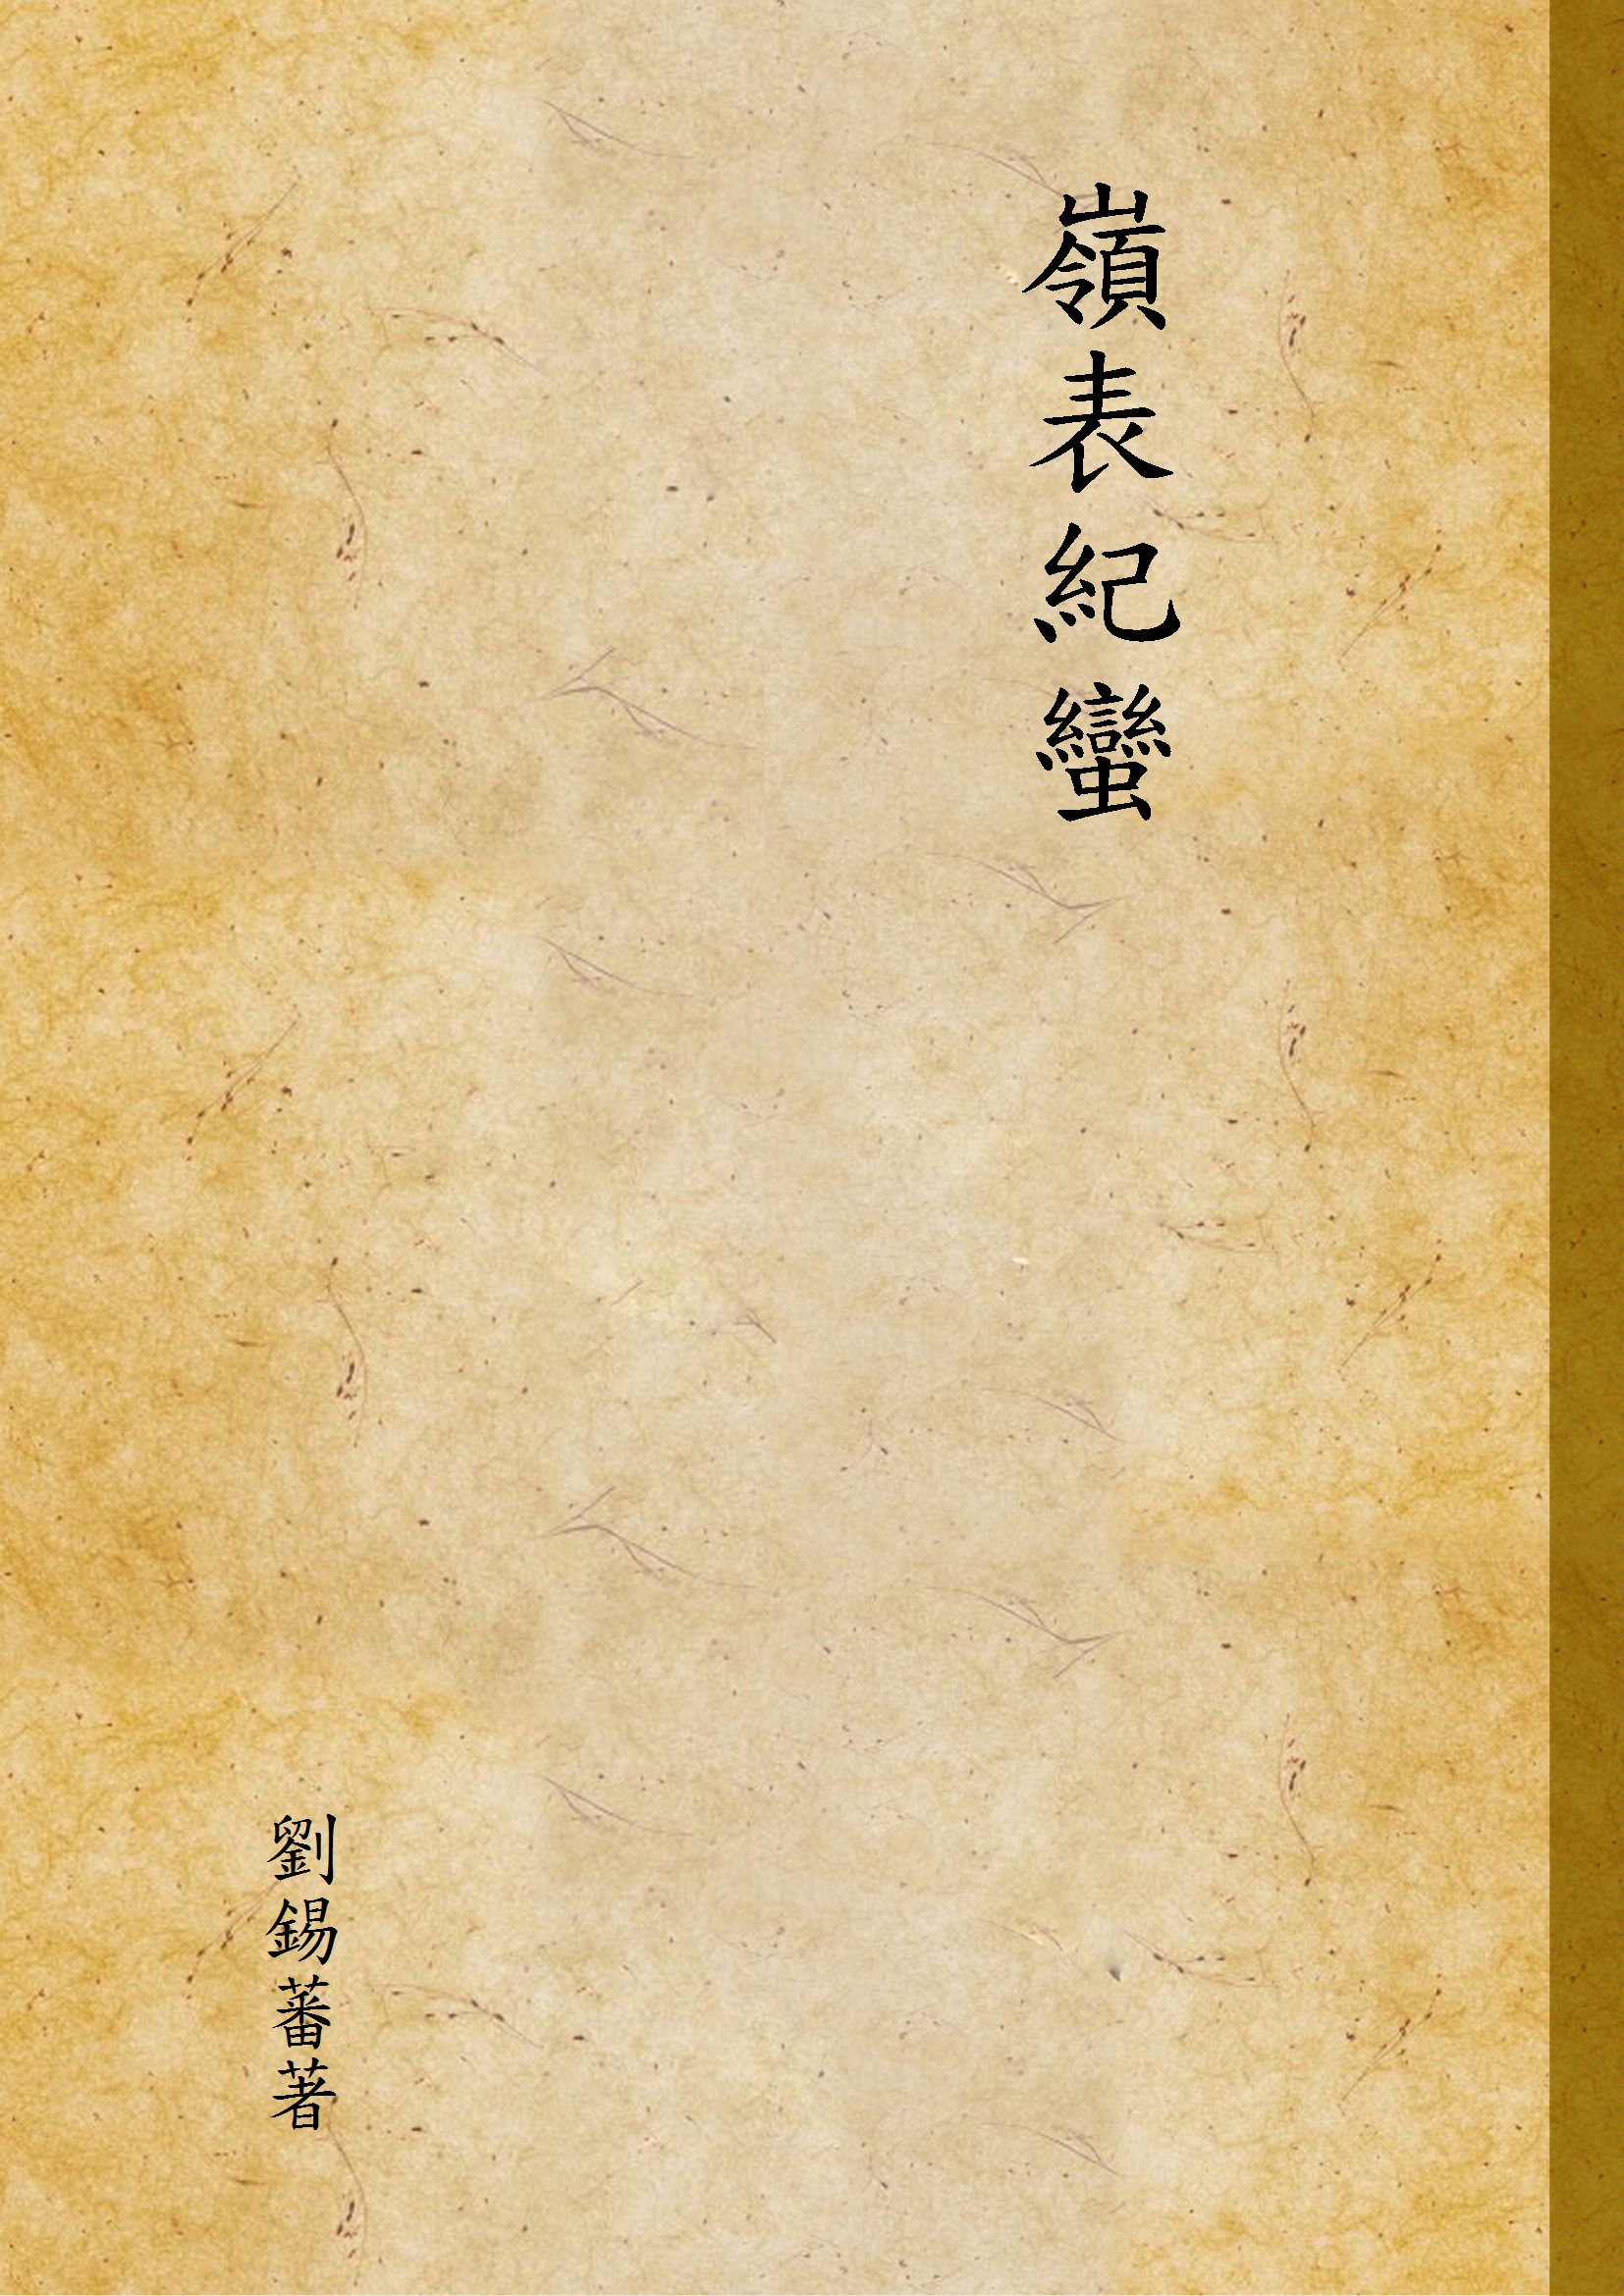 嶺表紀蠻
劉錫蕃著